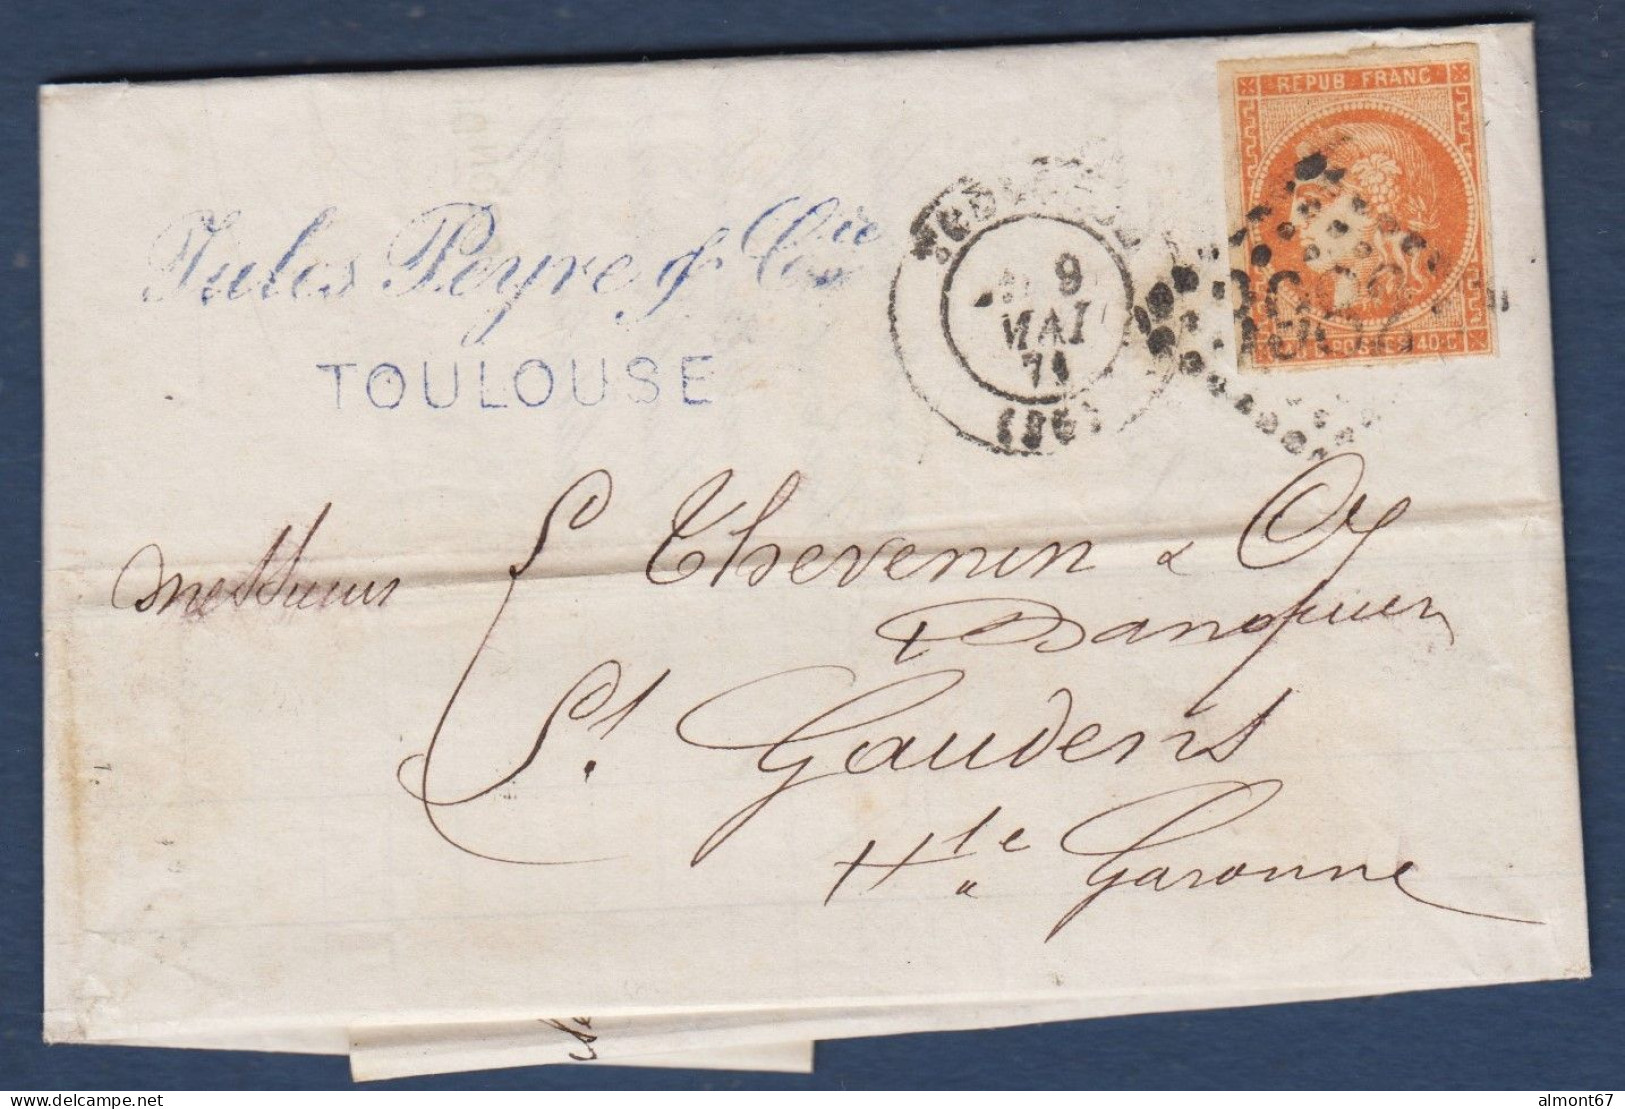 REPUB FRANC
Jules Peyre & Cie
TOULOUSE
TOULOUSE
9
MAI
71
POSTES 40 C
Messieurs S. Thevenin & Cy
Banquiers
St. Gaudens
Hte Garonne
almont67